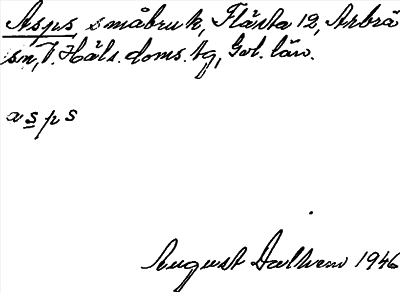 Asps småbruk, Flästa 12, Arbrå
sn, V. Häls. doms. tg, Gvl. län.
asps
August Dalhem 1946